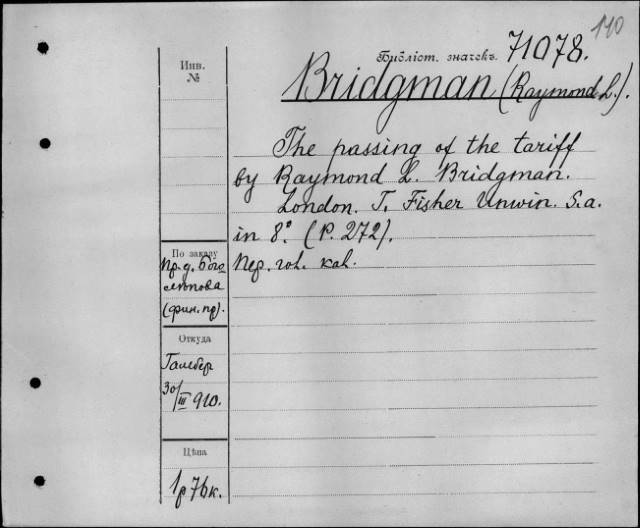 140
Библіот. значекъ. 71078.
Bridgman (Raymond L.).
The passing of the tariff
by Raymond L. Bridgman.
London. T. Fisher Unwin. S.a.
in 8.° (P. 272).
Пер. гол. кал.
Инв.
№
По заказу
Пр. д. Бого
лѣпова
(фин. пр).
Откуда
Гальбер
30/III 910.
Цѣна
1 р 76 к.